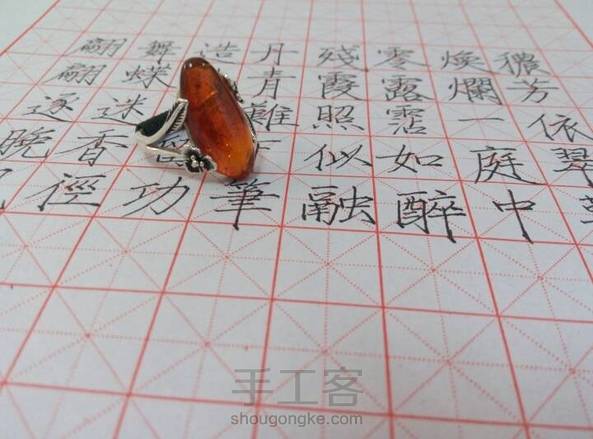 穠芳依翠
煥爛一庭中
零露霑如醉
殘霞照似融
丹青難下筆
造功
舞蝶迷香徑
翩翩逐晚
手工客
shougongke.com